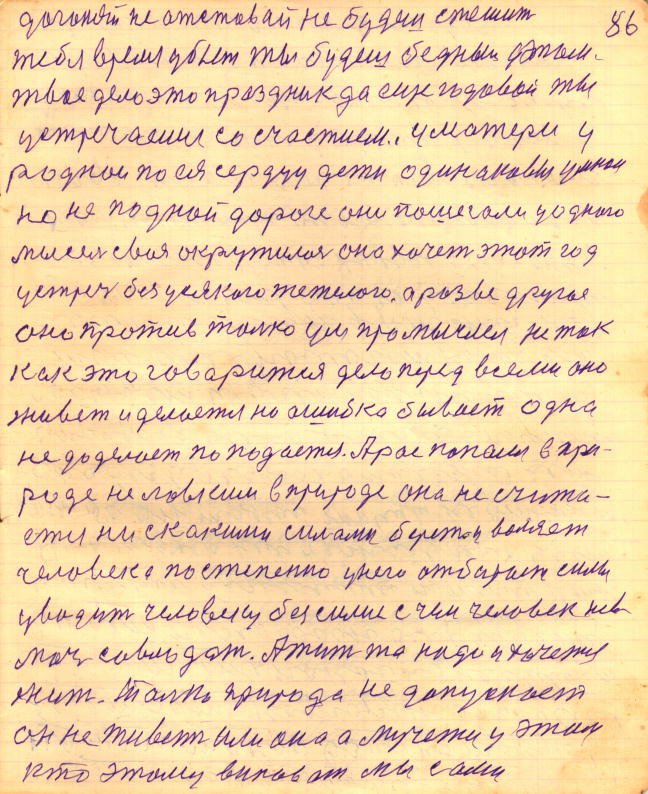 86
догоняй не отставай не будеш спешит
тебя время убьет ты будеш бедным в этом.
твое дело это праздник да еще годовой ты
устречаеш со счастием. у матери у
родной после сердцу дети одинаковы умном
но не по одной дороге они пошегали у одного
мысля своя окружилас она хочет этот год
устреч без усякого тежелого. а разве другое
оно против толко ум промышлял не так
как это говарится дело перед всеми оно
живет и делается но ошибка бывает одна
не доделает пополается. А рас попался в при-
роде не ловким в природе она не счита-
ется ни с какими силами берет и валяет
человека постепенно у него отбирает силы
уводит человеку безсилие с чем человек не
моч совлодат. А жит то надо и хочется
жит. Толко природа не допускает
он не живет или она а мучется у этом
кто этому виноват мы сами